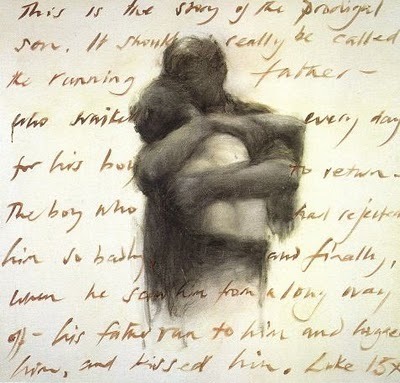 This is the story of the prodigal
son. It should really be called
the running father -
who waited every day
for his boy to return.
The boy who had rejected
him so badly and finally,
when he saw him from a long way
off - his father ran to him and hugged
him, and kissed him. Luke 15